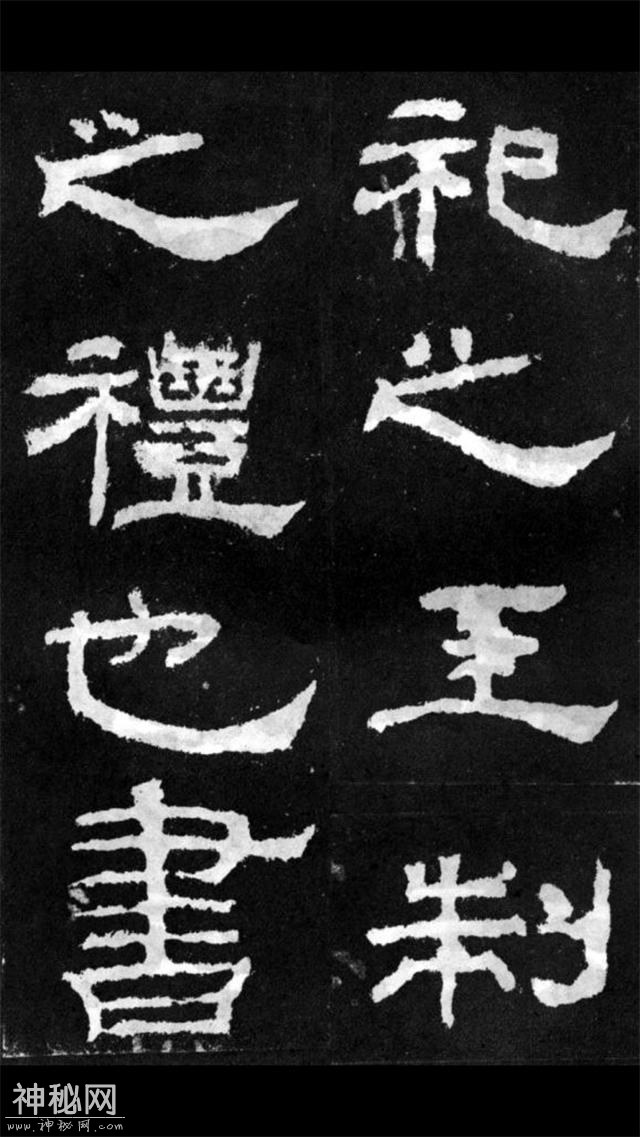 祀之王制
之禮也書
神秘网
www.神秘网.com